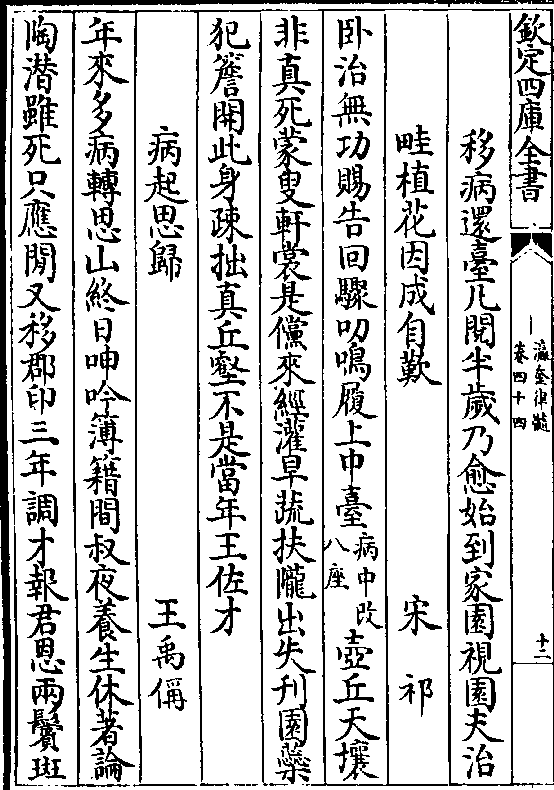 欽定四庫全書
瀛奎律髓
卷四十四
十二
移病還臺凡閱半歲乃愈始到家園視園夫治
畦植花因成自歎
宋祁
卧治無功賜告回驟叨鳴履上中臺病中改八座壺丘天壤
非真死蒙叟軒裳是儻來經灌早蔬扶隴出失刋園藥
犯簷開此身疎拙真丘壑不是當年王佐才
病起思歸
王禹偁
年來多病轉思山終日呻吟簿籍間叔夜養生休著論
陶潛雖死只應閒又移郡印三年調才報君恩兩鬢斑